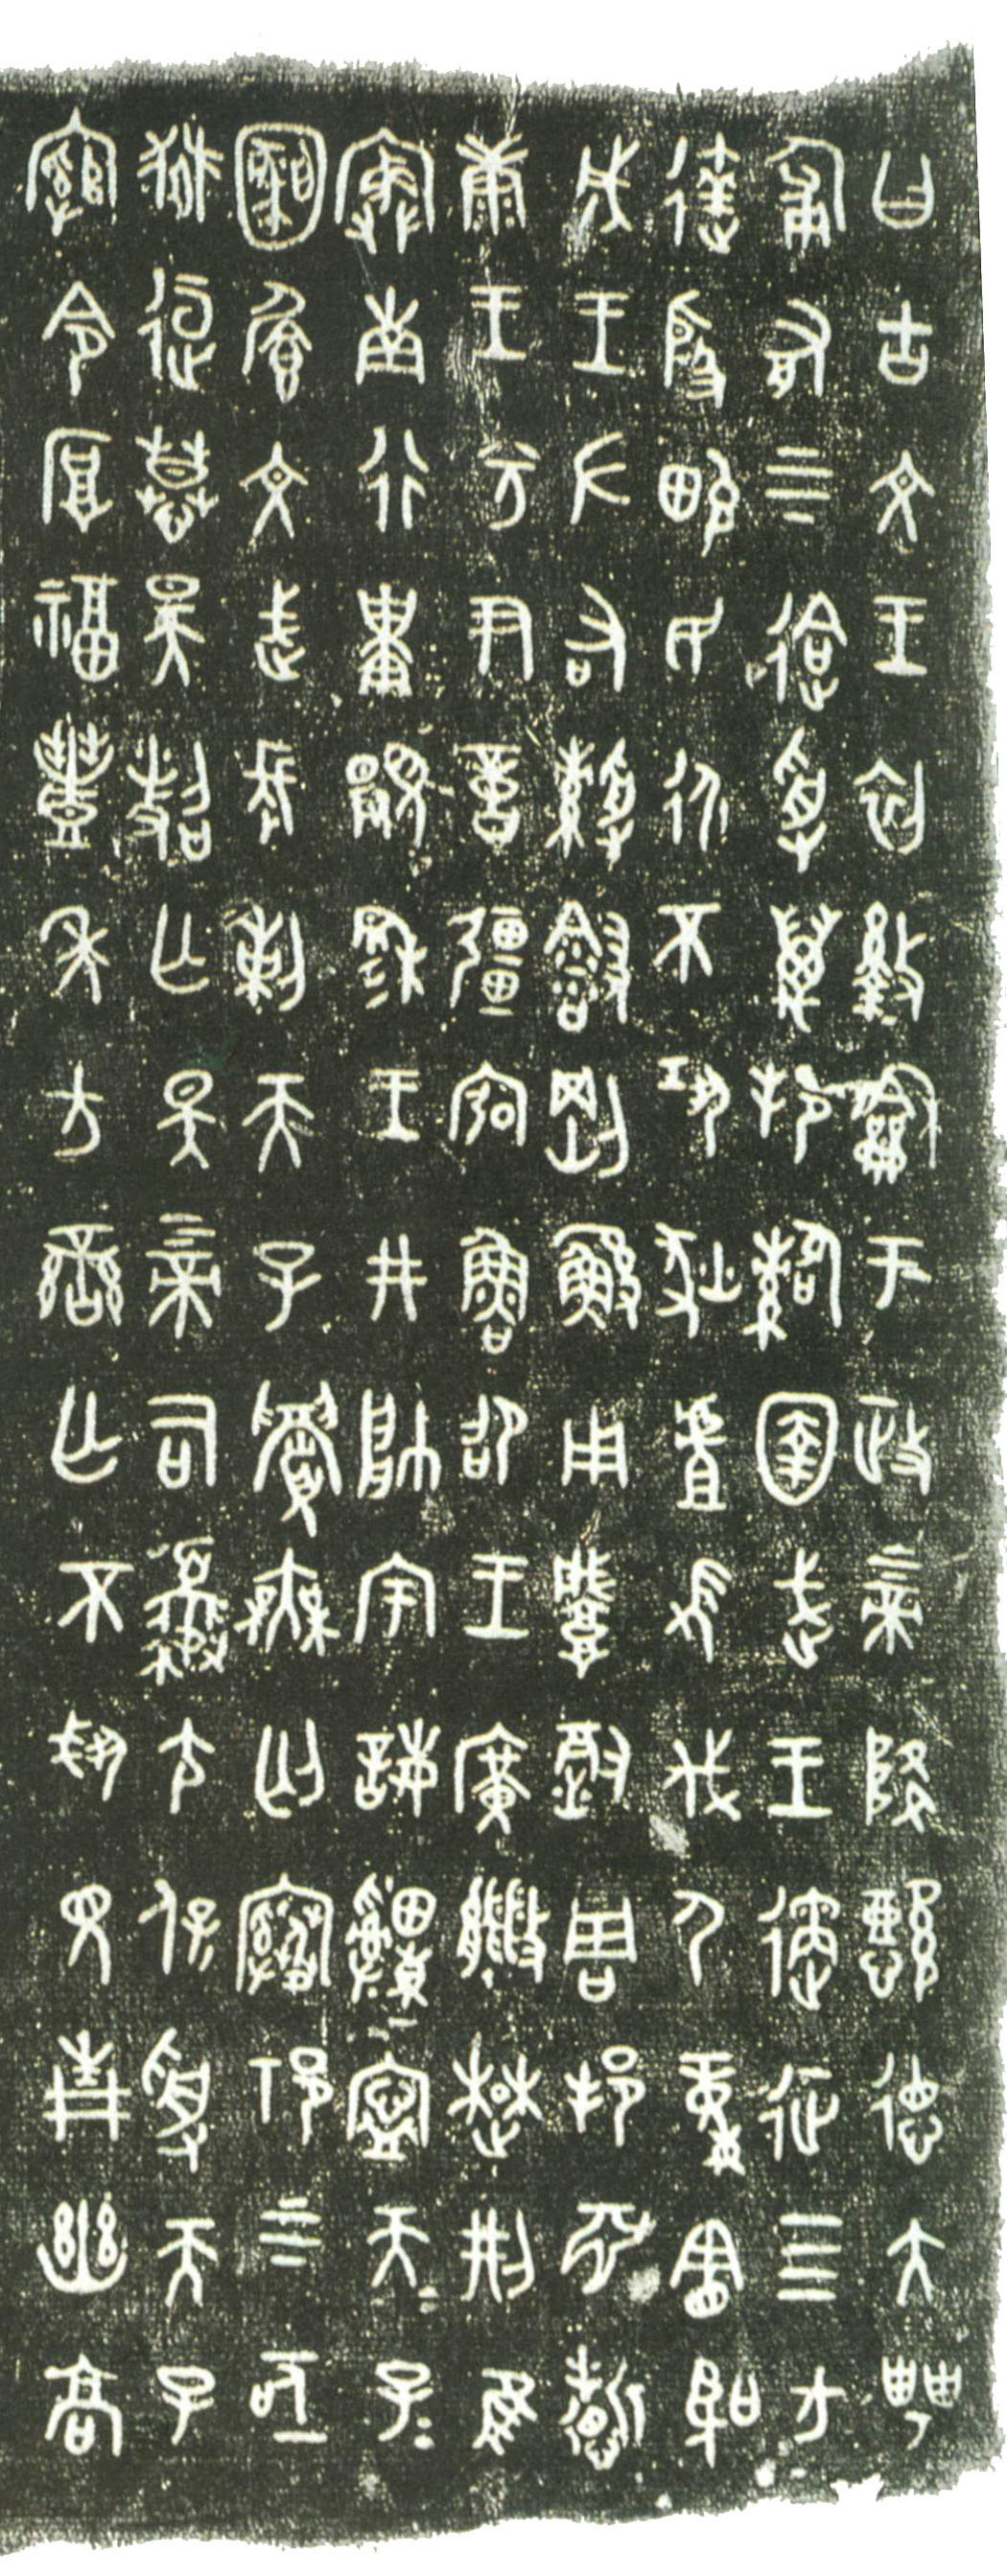 曰古文王初盭龢于政上帝降懿德大甹
匍有上下迨受萬邦䚄圉武王遹征四方
達殷畯民永不巩狄虘𢼸伐尸童憲聖
成王左右綬䌛剛鯀用肇徹周邦淵哲
康王兮尹億疆宖魯卲王廣能楚荊隹
寏南行祗顯穆王井帥宇誨申寧天子=
圝饡文武長剌天子眉無匄祁上下亟
獄逗慕昊照亡斁上帝司夒尢保受天子
綰令厚福豐年方蠻亡不𢦚見青幽高